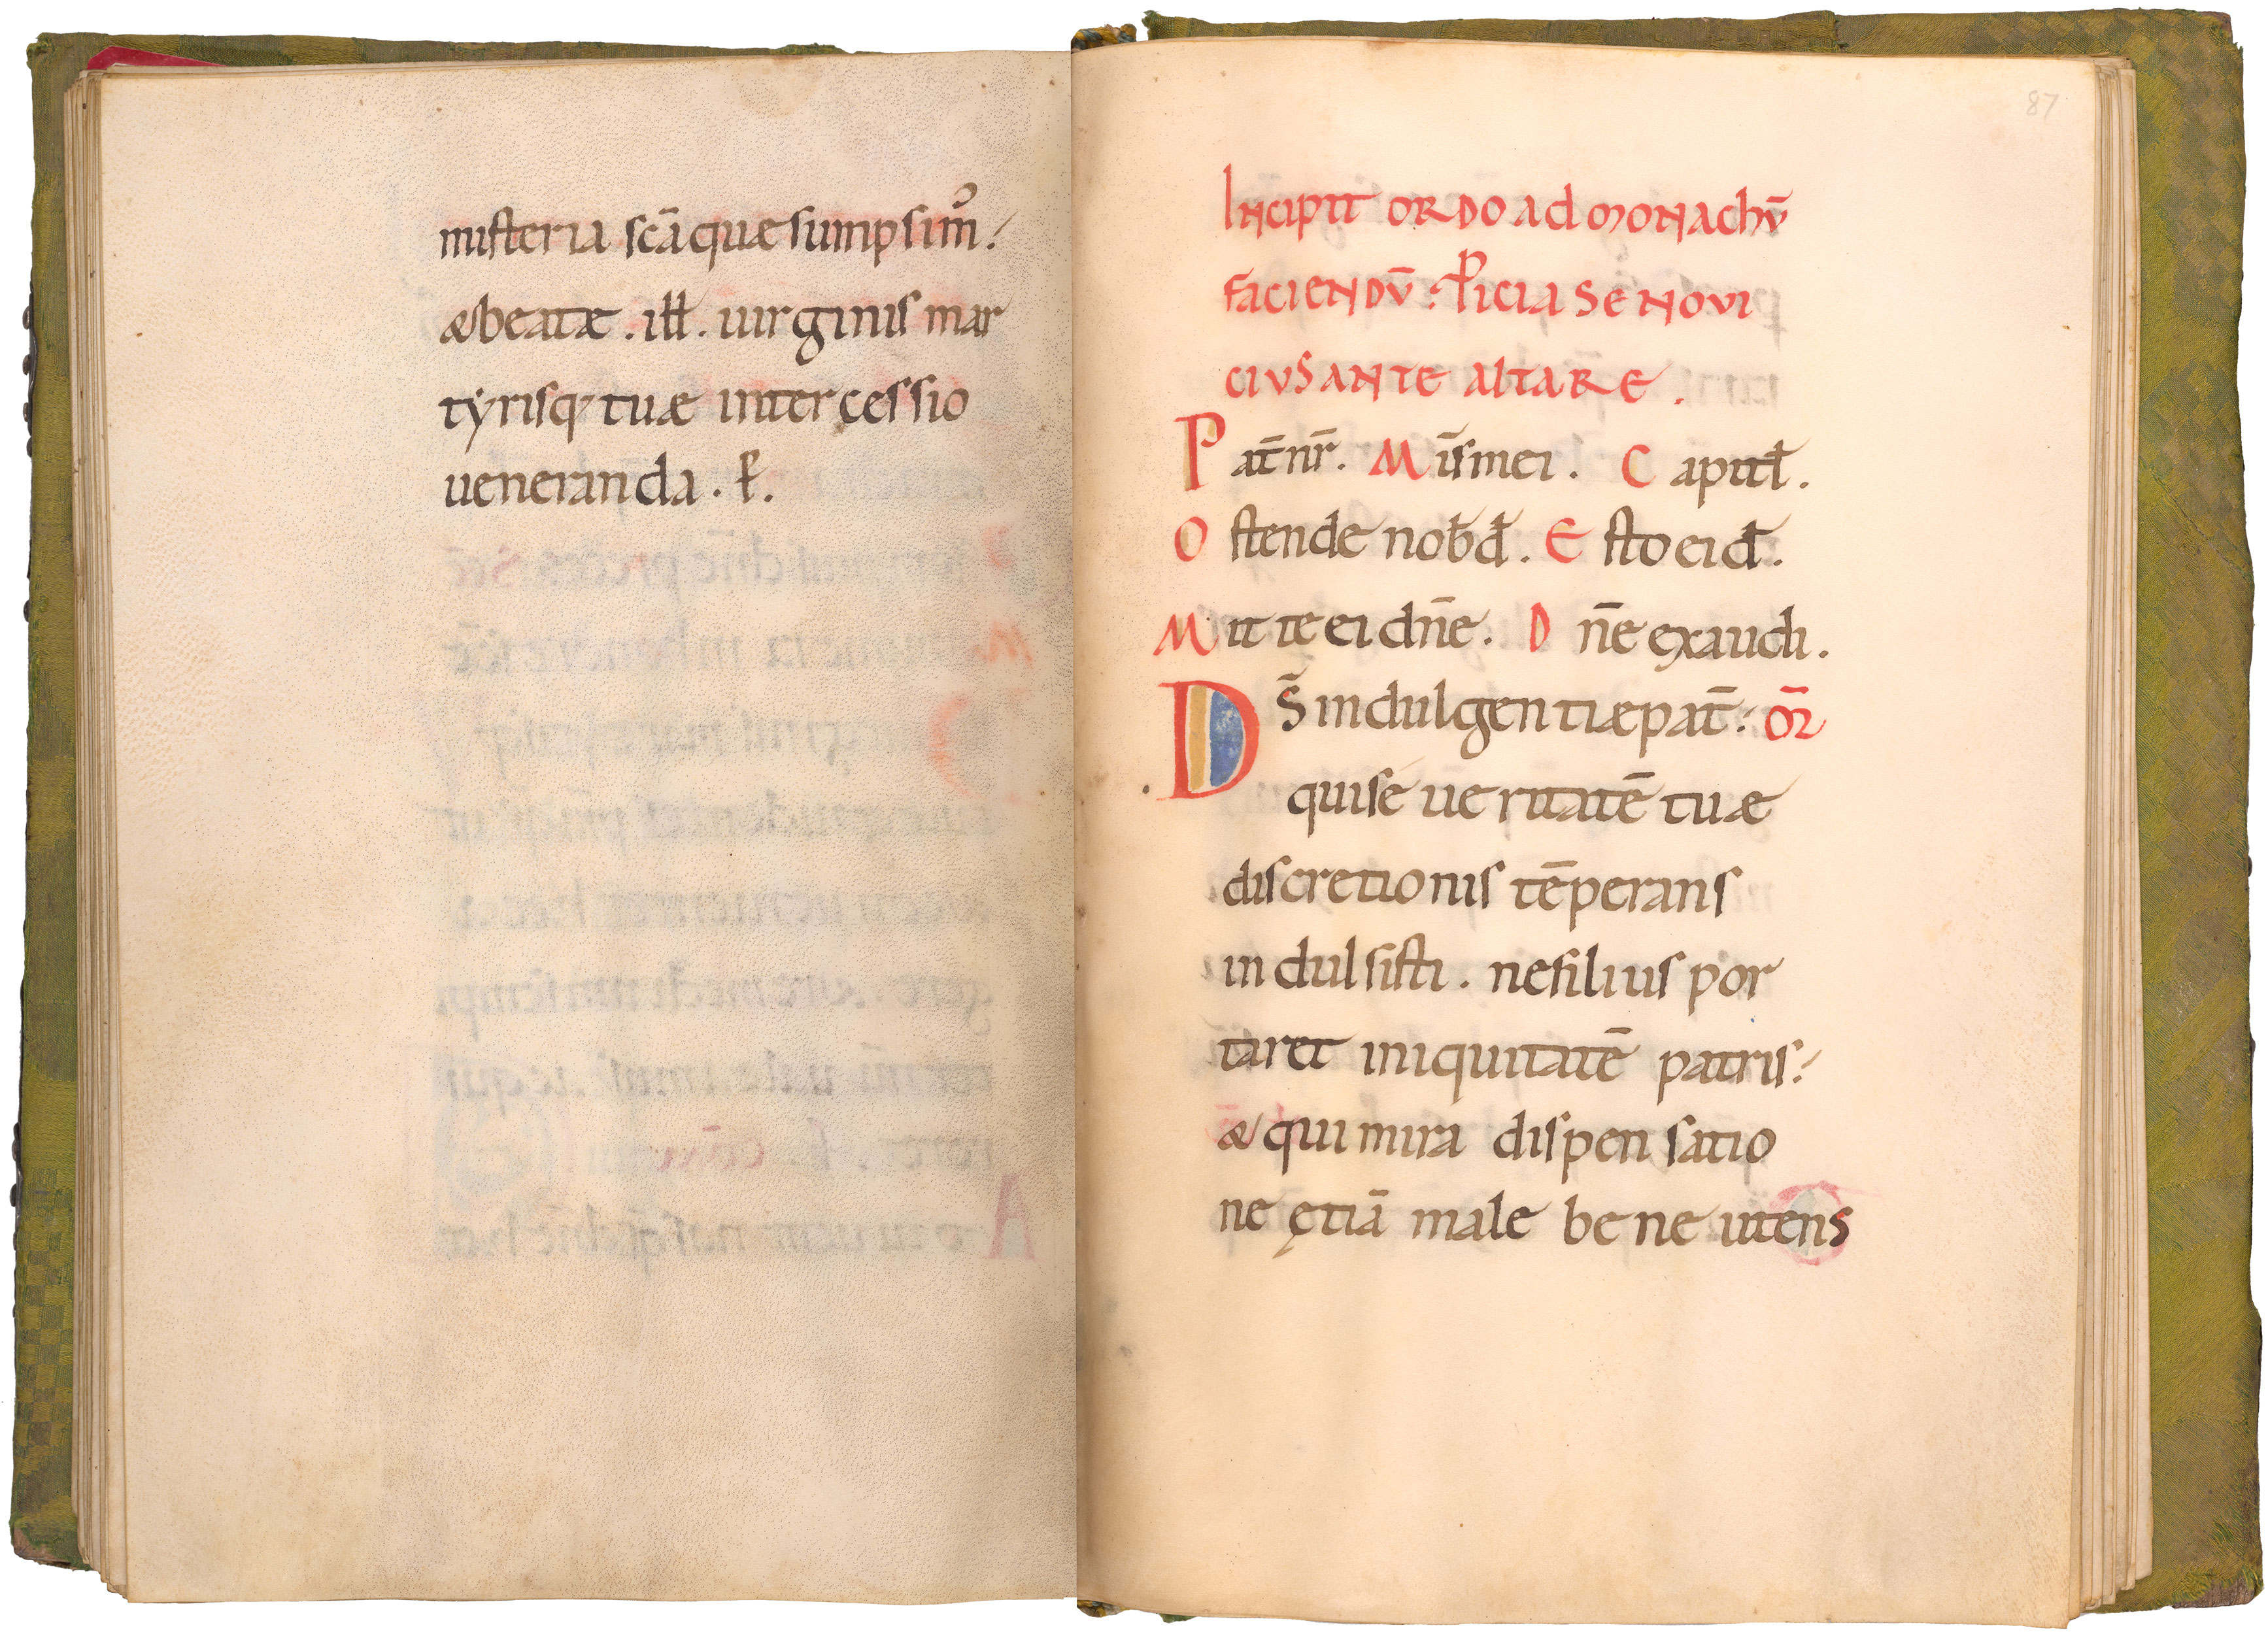 misteria scā quae sumpsim᷒.
& beatæ . ill . uirginis mar
tyrisq; tuæ intercessio
ueneranda . P̱.
87
Incipit ordo ad monachū
faciendū: Piciase novi
cius ante altare .
Pat̄ nr̄. M is̄ mei . Capitł .
Ostende nob d̄ . Esto ei d̄ .
Mitte ei dn̄e . Dn̄e exaudi .
Ds̄ indulgentiæ pat̄: or̄
qui seueritatē tuæ
discretionis tēperans
indulsisti . ne filius por
taret iniquitatē patris:
& qui mira dispensatio
ne ętiā male bene utens